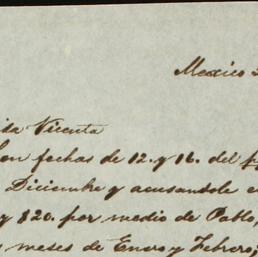 Mexico
Vicenta
fechas de 12. y 16. del
Diciembre y acusandole
y 820. por medio de Pablo,
meses de Enero y Febrero;